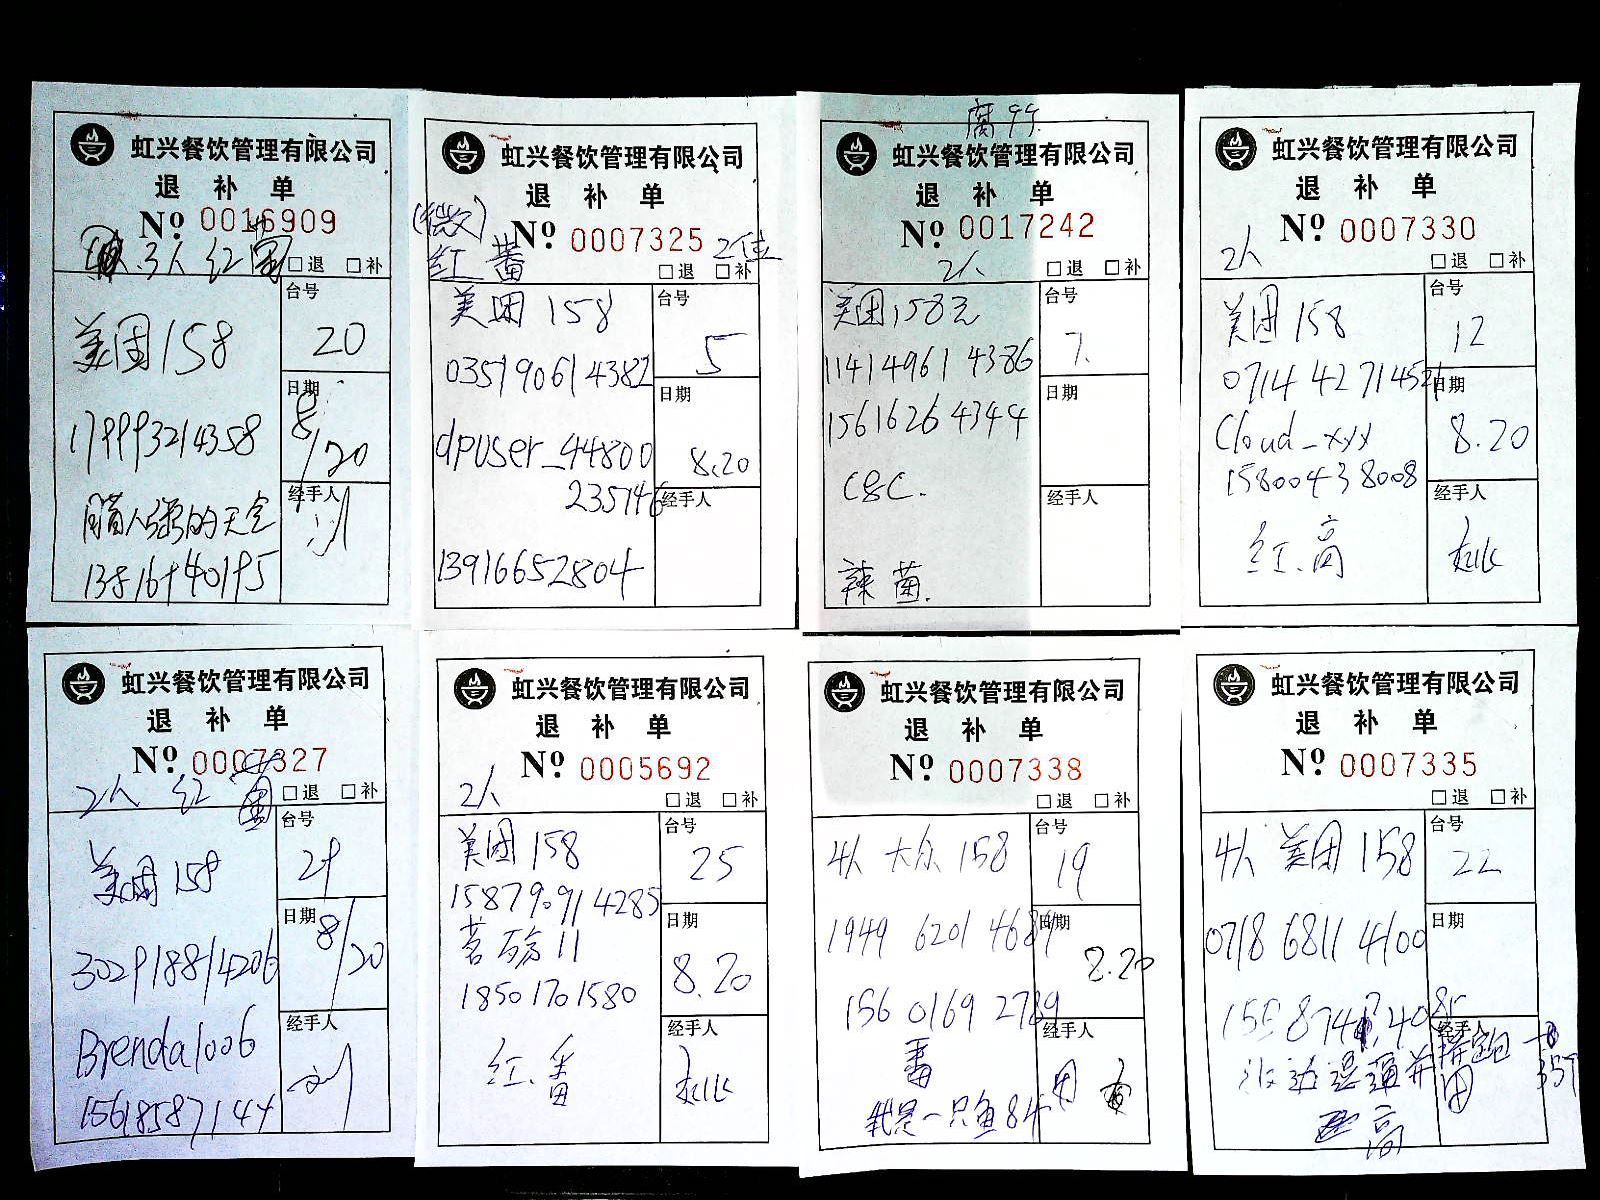 虹兴餐饮管理有限公司
退 补 单
Nº 0016909
3人 红
□退 □补
美团158
台号
20
179993214358
日期
8/20
的天空
经手人
虹兴餐饮管理有限公司
退 补 单
Nº 0007325
2位
红 番
□退 □补
美团 158
台号
5
035190614382
日期
8.20
dpuser_44800
235746
经手人
13916652804
腐竹
虹兴餐饮管理有限公司
退 补 单
Nº 0017242
2人
□退 □补
美团158元
台号
7.
11414961 4386
日期
1561626 4344
C&C.
经手人
辣 菌.
虹兴餐饮管理有限公司
退 补 单
Nº 0007330
2人
□退 □补
美团 158
台号
12
0714 42714521
日期
8.20
Cloud_xyx
15800438008
经手人
红.高
虹兴餐饮管理有限公司
退 补 单
Nº 0007327
2人 红
□退 □补
美团 158
台号
29
302918814206
日期
8/20
Brenda1006
经手人
刘
虹兴餐饮管理有限公司
退 补 单
Nº 0005692
2人
□退 □补
美团 158
台号
25
158790914285
日期
8.20
18501701580
经手人
红.番
虹兴餐饮管理有限公司
退 补 单
Nº 0007338
□退 □补
4人 大众 158
台号
19
1949 6201 4689
日期
8.20
156 0169 2789
经手人
我是一只鱼84
虹兴餐饮管理有限公司
退 补 单
Nº 0007335
□退 □补
4人 美团 158
台号
22
0718 6811 4100
日期
经手人
高